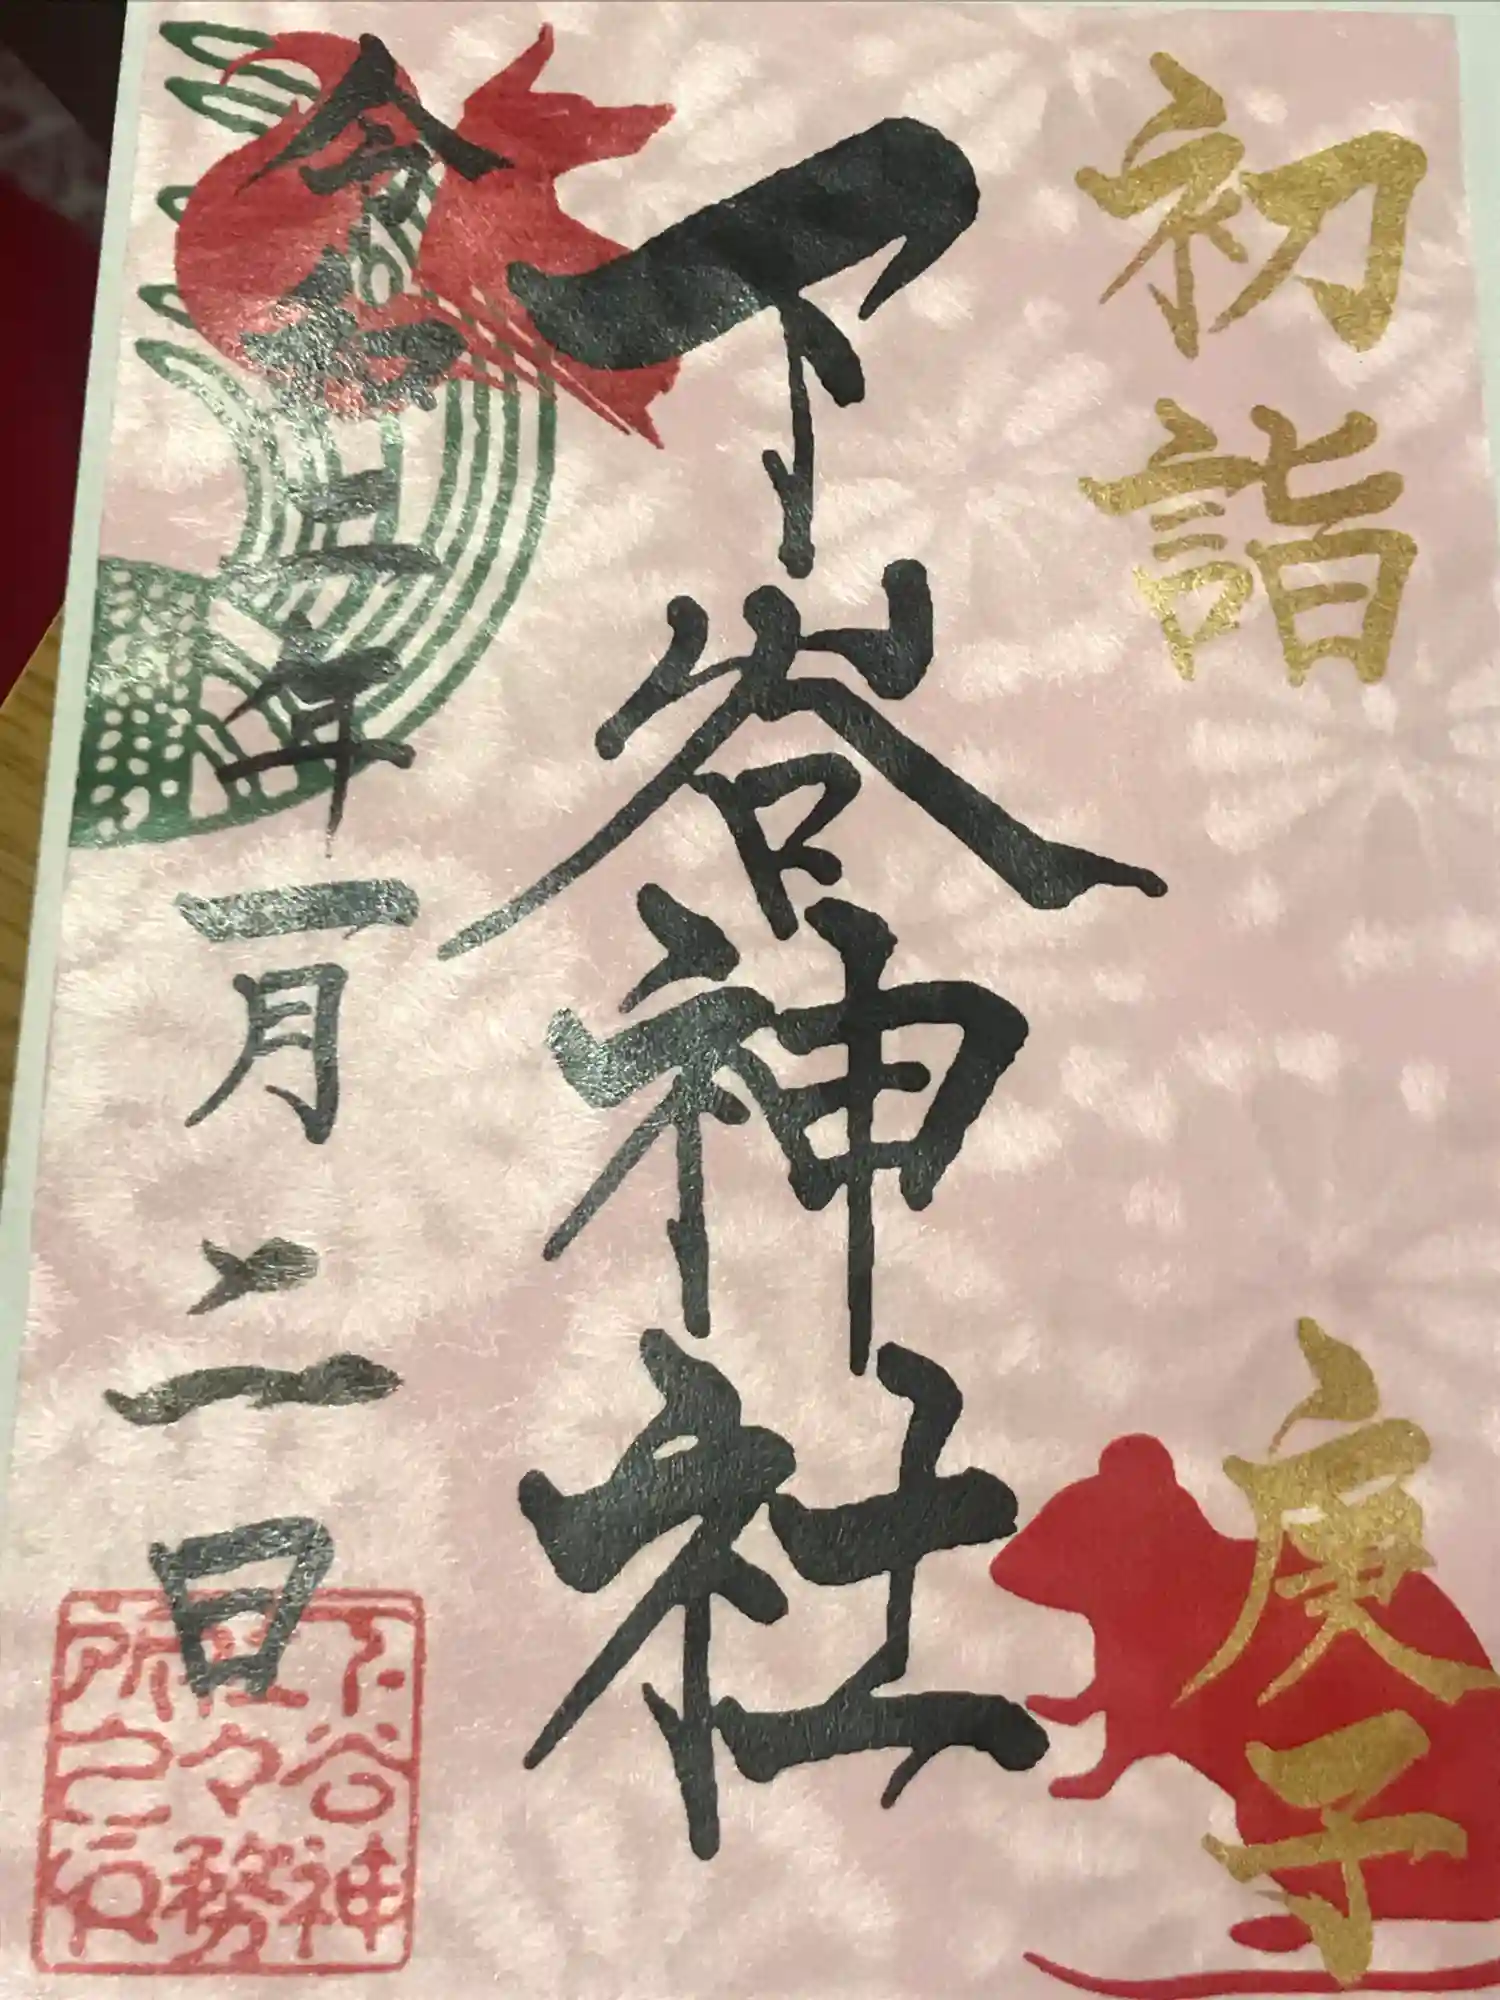 初詣
庚子
下谷神社
令和二年一月二日
下谷神
社々務
所之印